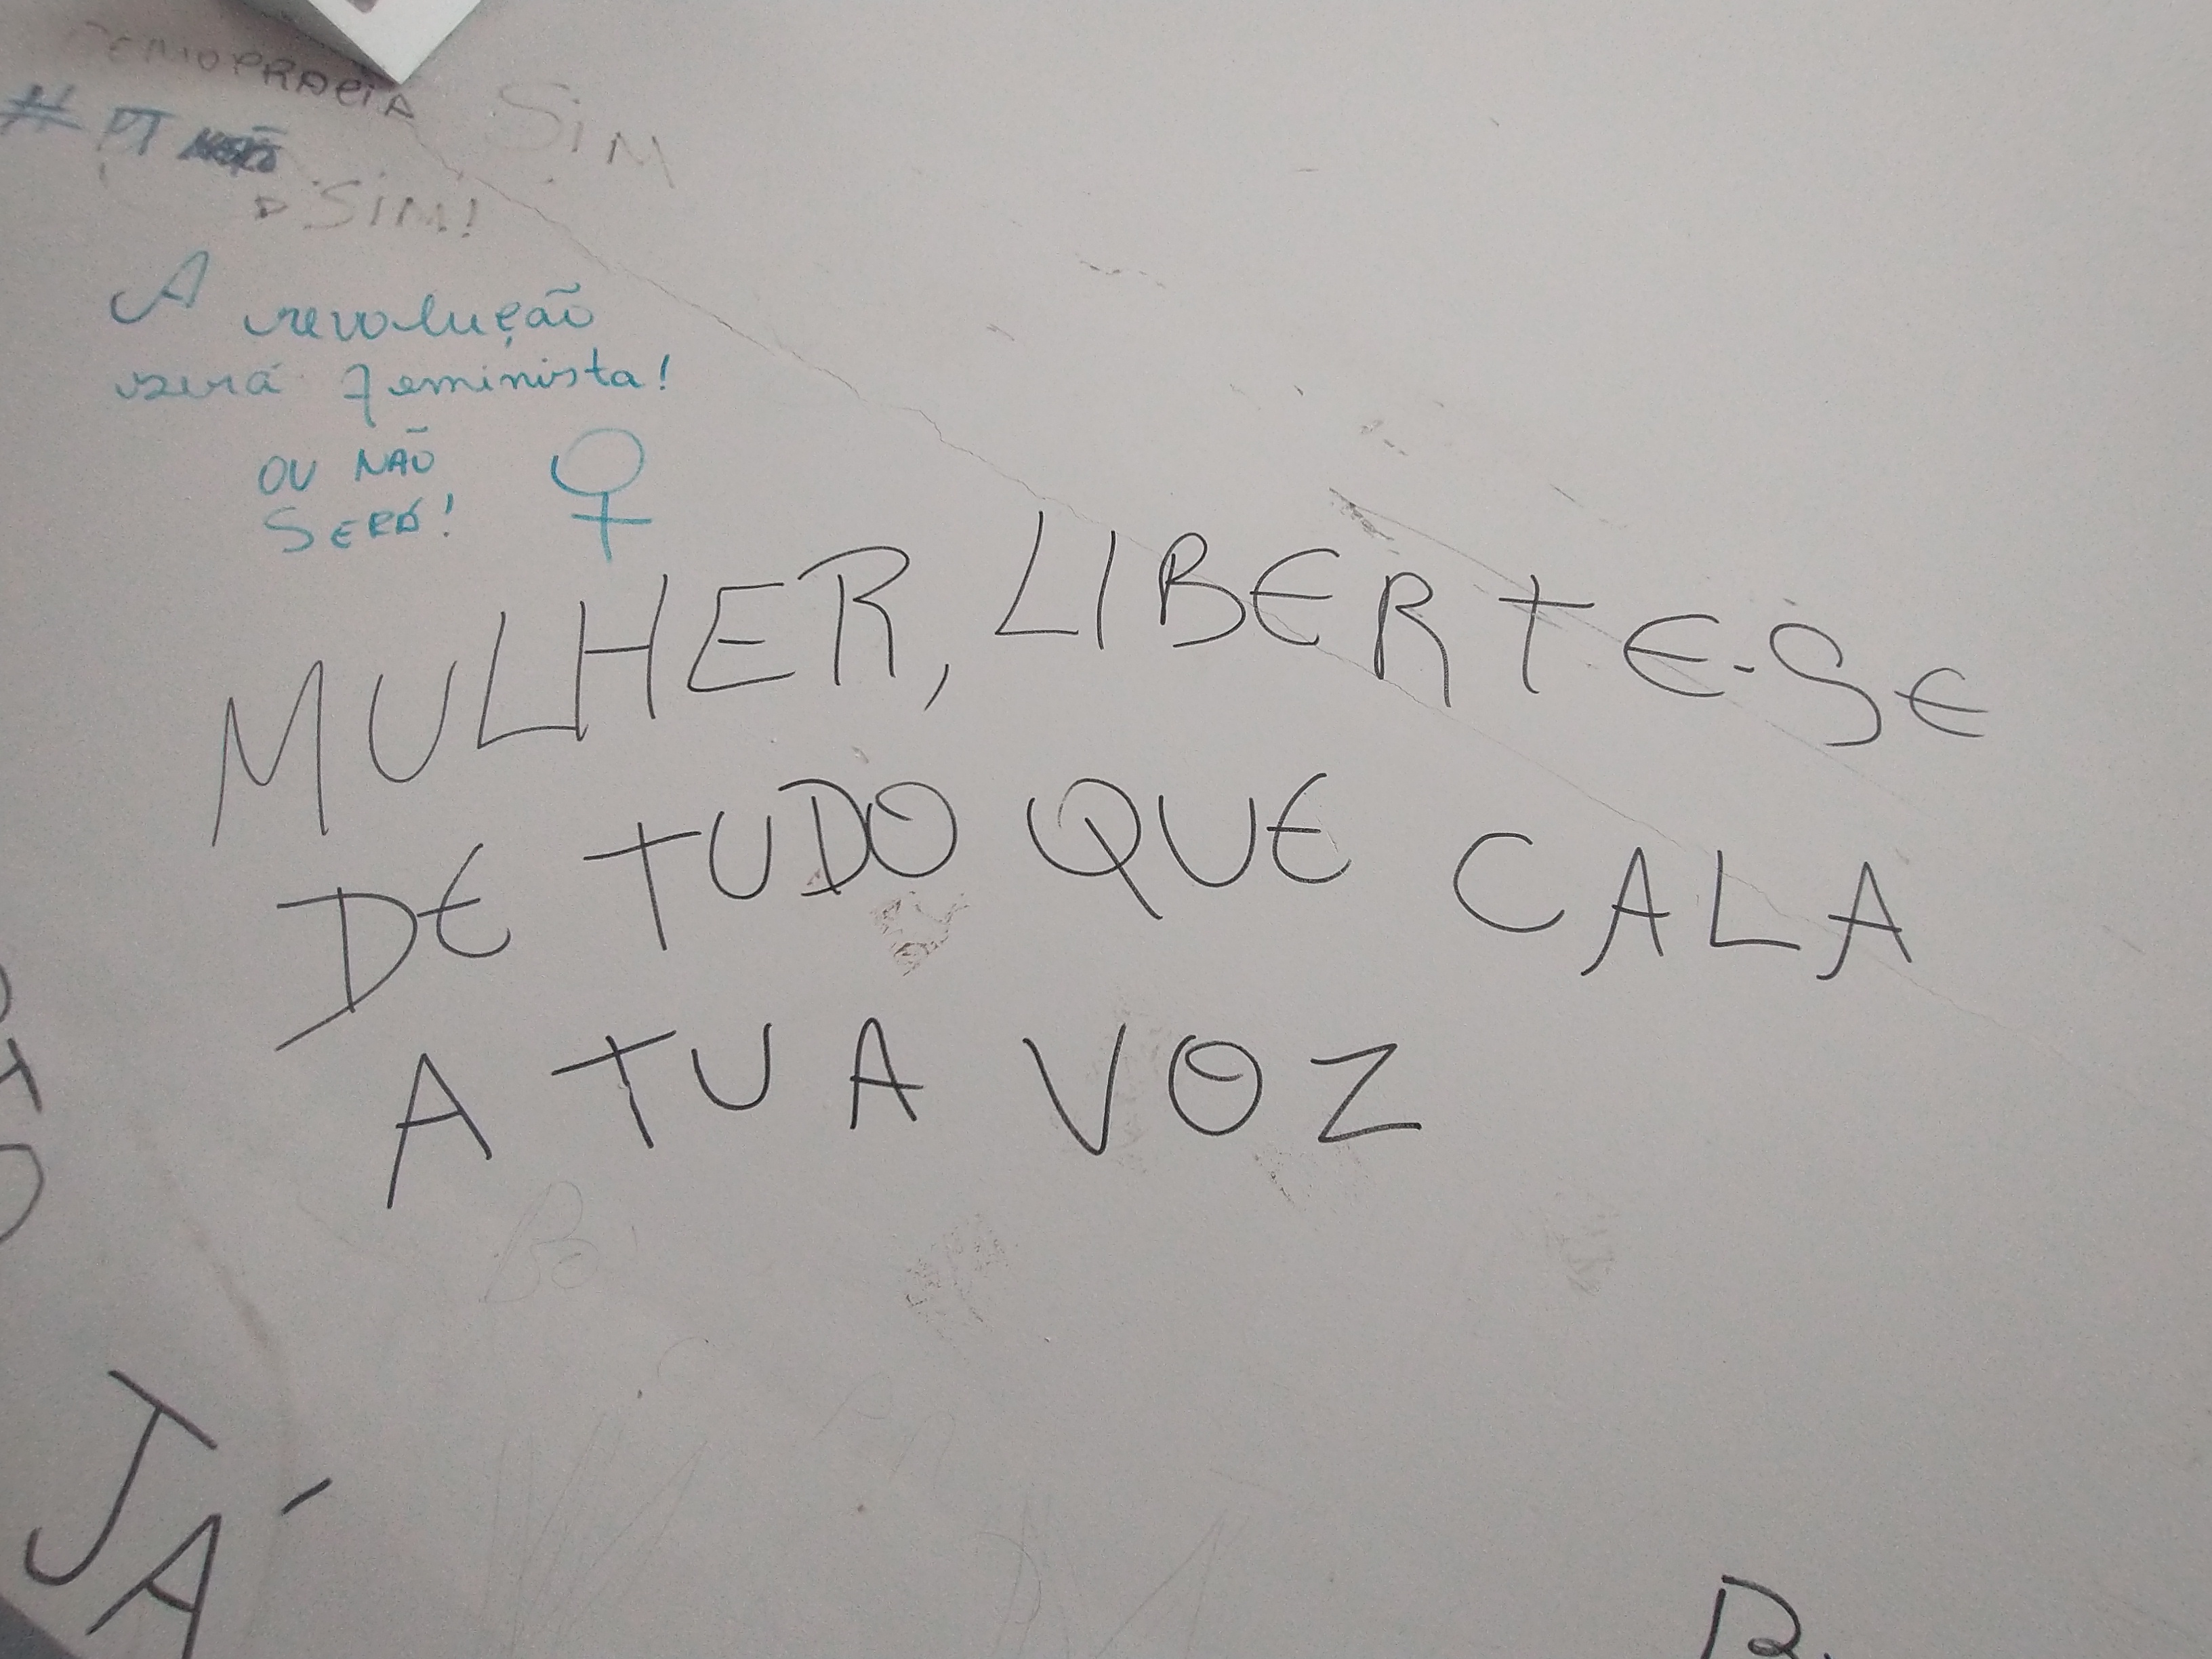 DEMOCRACIA SIM
# PT NÃO
SIM!
A revolução
será feminista!
OU NÃO
SERÁ!
MULHER, LIBERTE-SE
DE TUDO QUE CALA
A TUA VOZ
JÁ